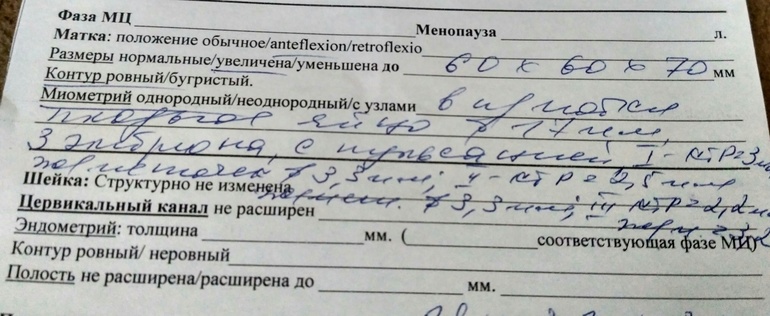 Фаза МЦ Менопауза л.
Матка: положение обычное/anteflexion/retroflexio
Размеры нормальные/увеличена/уменьшена до 60 х 60 х 70 мм
Контур ровный/бугристый.
Миометрий однородный/неоднородный/с узлами в п/матки
плодное яйцо 17 мм,
3 эмбриона, с пульсацией I - КТР=3
жел. мешочек 3,3 мм; II - КТР=2,5 мм
Шейка: Структурно не изменена 3,3 мм; III КТР=2,2
Цервикальный канал не расширен
Эндометрий: толщина мм. ( соответствующая фазе МЦ)
Контур ровный/ неровный
Полость не расширена/расширена до мм.